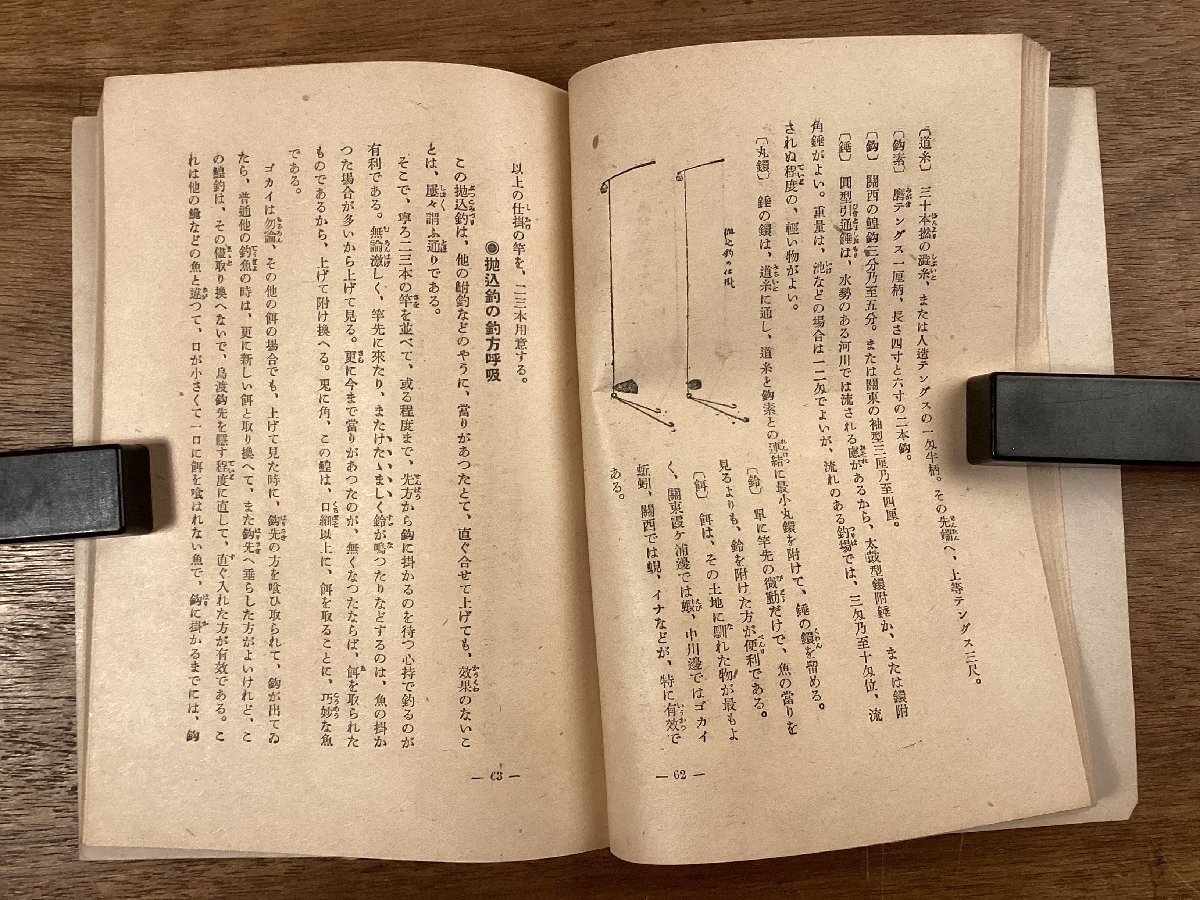 〔道糸〕　三十本撚の澁糸、または人造テングスの一匁半柄。その先端へ、上等テングス三尺。
〔鈎素〕　磨テングス一厘柄、長さ四寸と六寸の二本鈎。
〔鈎〕　關西の鰉鈎三分乃至五分。または關東の袖型三厘乃至四厘。
〔錘〕　圓型引通錘は、水勢のある河川では流される慮があるから、太鼓型鐶附錘か、または鐶附
角錘がよい。重量は、池などの場合は一二匁でよいが、流れのある釣場では、三匁乃至十匁位、流
されぬ程度の、輕い物がよい。
〔丸鐶〕　錘の鐶は、道糸に通し、道糸と鈎素との連結に最小丸鐶を附けて、錘の鐶を留める。
〔鈴〕　單に竿先の微動だけで、魚の當りを
見るよりも、鈴を附けた方が便利である。
〔餌〕　餌は、その土地に馴れた物が最もよ
く、關東霞ヶ浦邊では蝦、中川邊ではゴカイ
蚯蚓、關西では蜆、イナなどが、特に有效で
ある。
— 62 —
以上の仕掛の竿を、二三本用意する。
◉拋込釣の釣方呼吸
この拋込釣は、他の鮒釣などのやうに、當りがあつたとて、直ぐ合せて上げても、效果のないこ
とは、屢々謂ふ通りである。
そこで、寧ろ二三本の竿を並べて、或る程度まで、先方から鈎に掛かるのを待つ心持で釣るのが
有利である。無論激しく、竿先に來たり、またけたゝましく鈴が鳴つたりなどするのは、魚の掛か
つた場合が多いから上げて見る。更に今まで當りがあつたのが、無くなつたならば、餌を取られた
ものであるから、上げて附け換へる。兎に角、この鰉は、口細以上に、餌を取ることに、巧妙な魚
である。
ゴカイは勿論、その他の餌の場合でも、上げて見た時に、鈎先の方を喰ひ取られて、鈎が出てゐ
たら、普通他の釣魚の時は、更に新しい餌と取り換へて、また鈎先へ垂らした方がよいけれど、こ
の鰉釣は、その儘取り換へないで、鳥渡鈎先を隱す程度に直して、直ぐ入れた方が有效である。こ
れは他の魚と違つて、口が小さくて一口に餌を喰はれない魚で、鈎に掛かるまでには、鈎
— 63 —